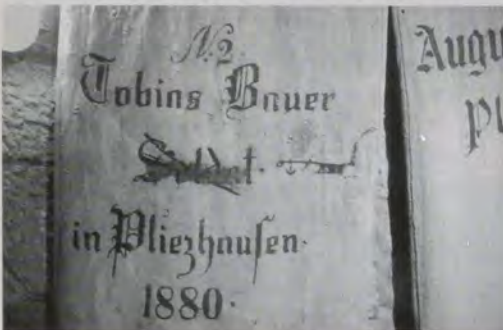 N. 2.
Tobias Bauer
Soldat.
in Pliezhausen.
1880.
Augu
Pl